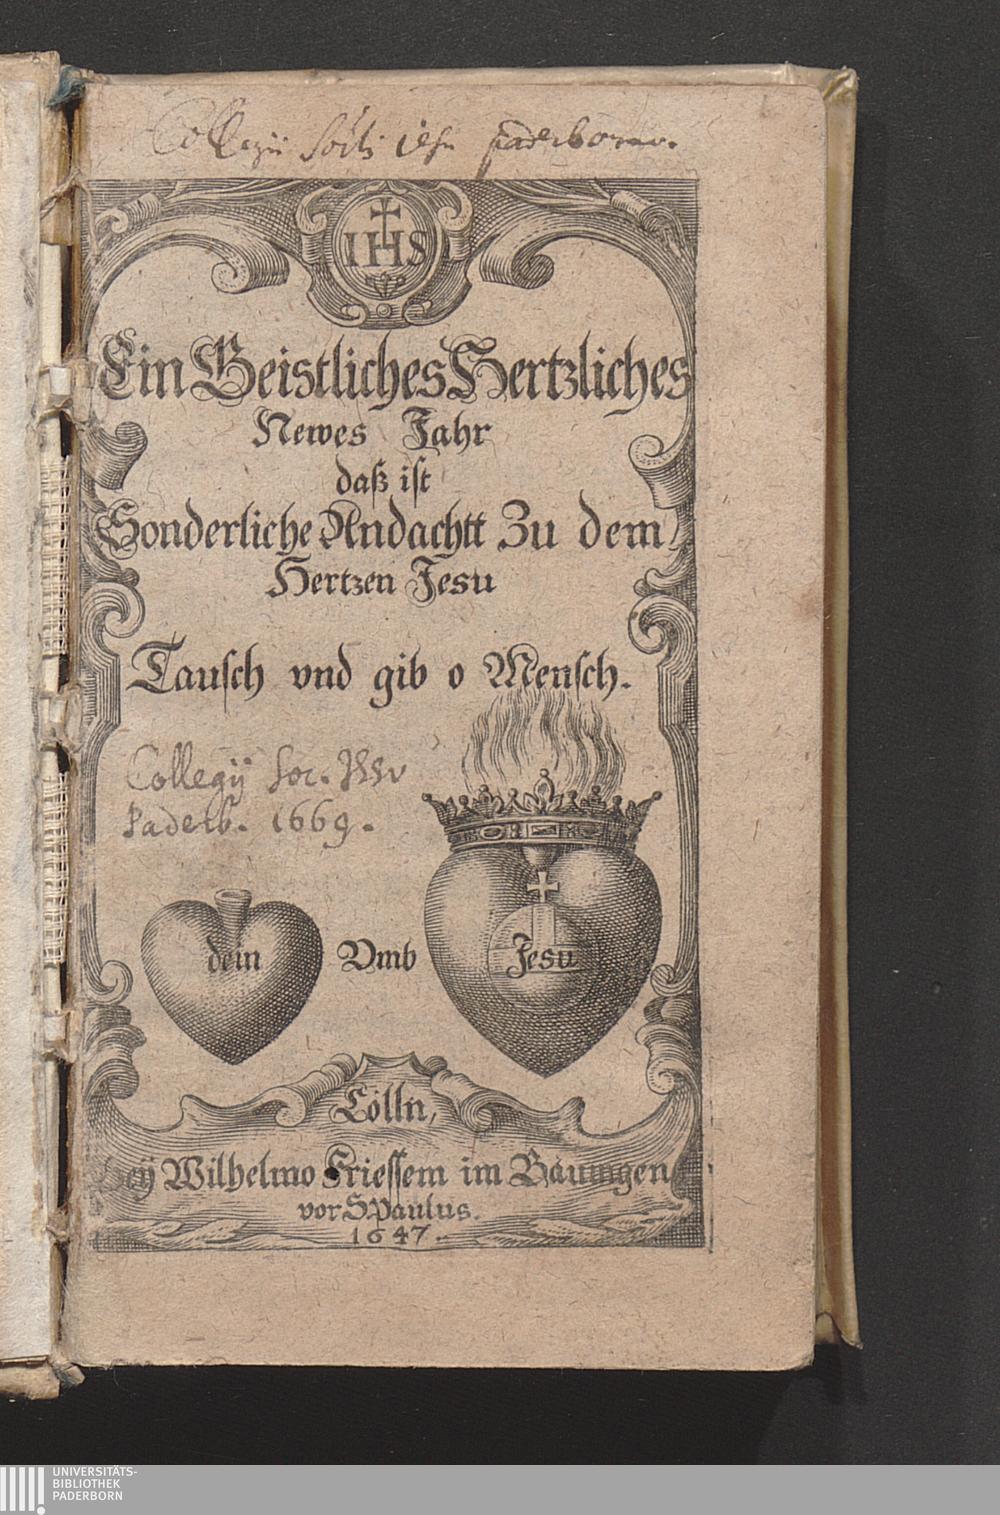 Collegii Soctis iesu paderborno.
IHS
Ein Geistliches Hertzliches
Newes Jahr
daß ist
Sonderliche Andachtt Zu dem
Hertzen Jesu
Tausch vnd gib o Mensch.
Collegij Soc. JESV
Paderb. 1669.
dein Vmb Jesu
Cölln,
Beÿ Wilhelmo Friessem im Bäumgen
vor S. Paulus.
1647.
UNIVERSITÄTS-
BIBLIOTHEK
PADERBORN